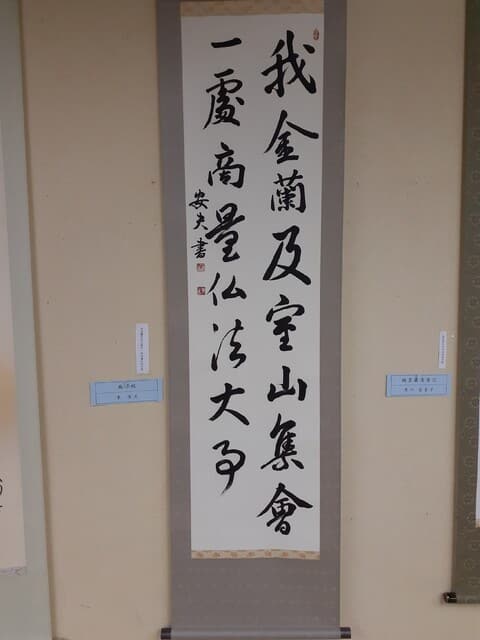 我金蘭及室山集會
一處商量仏法大事
安夫書